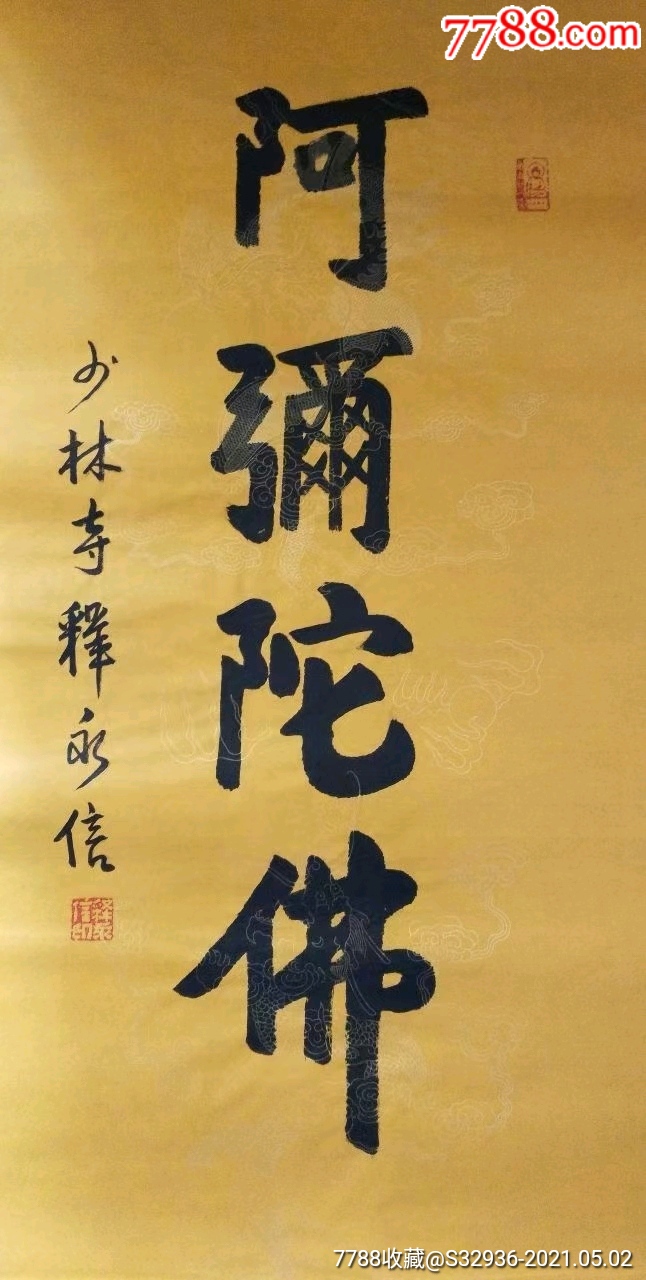 7788.com
阿彌陀佛
少林寺釋永信
7788收藏@S32936-2021.05.02